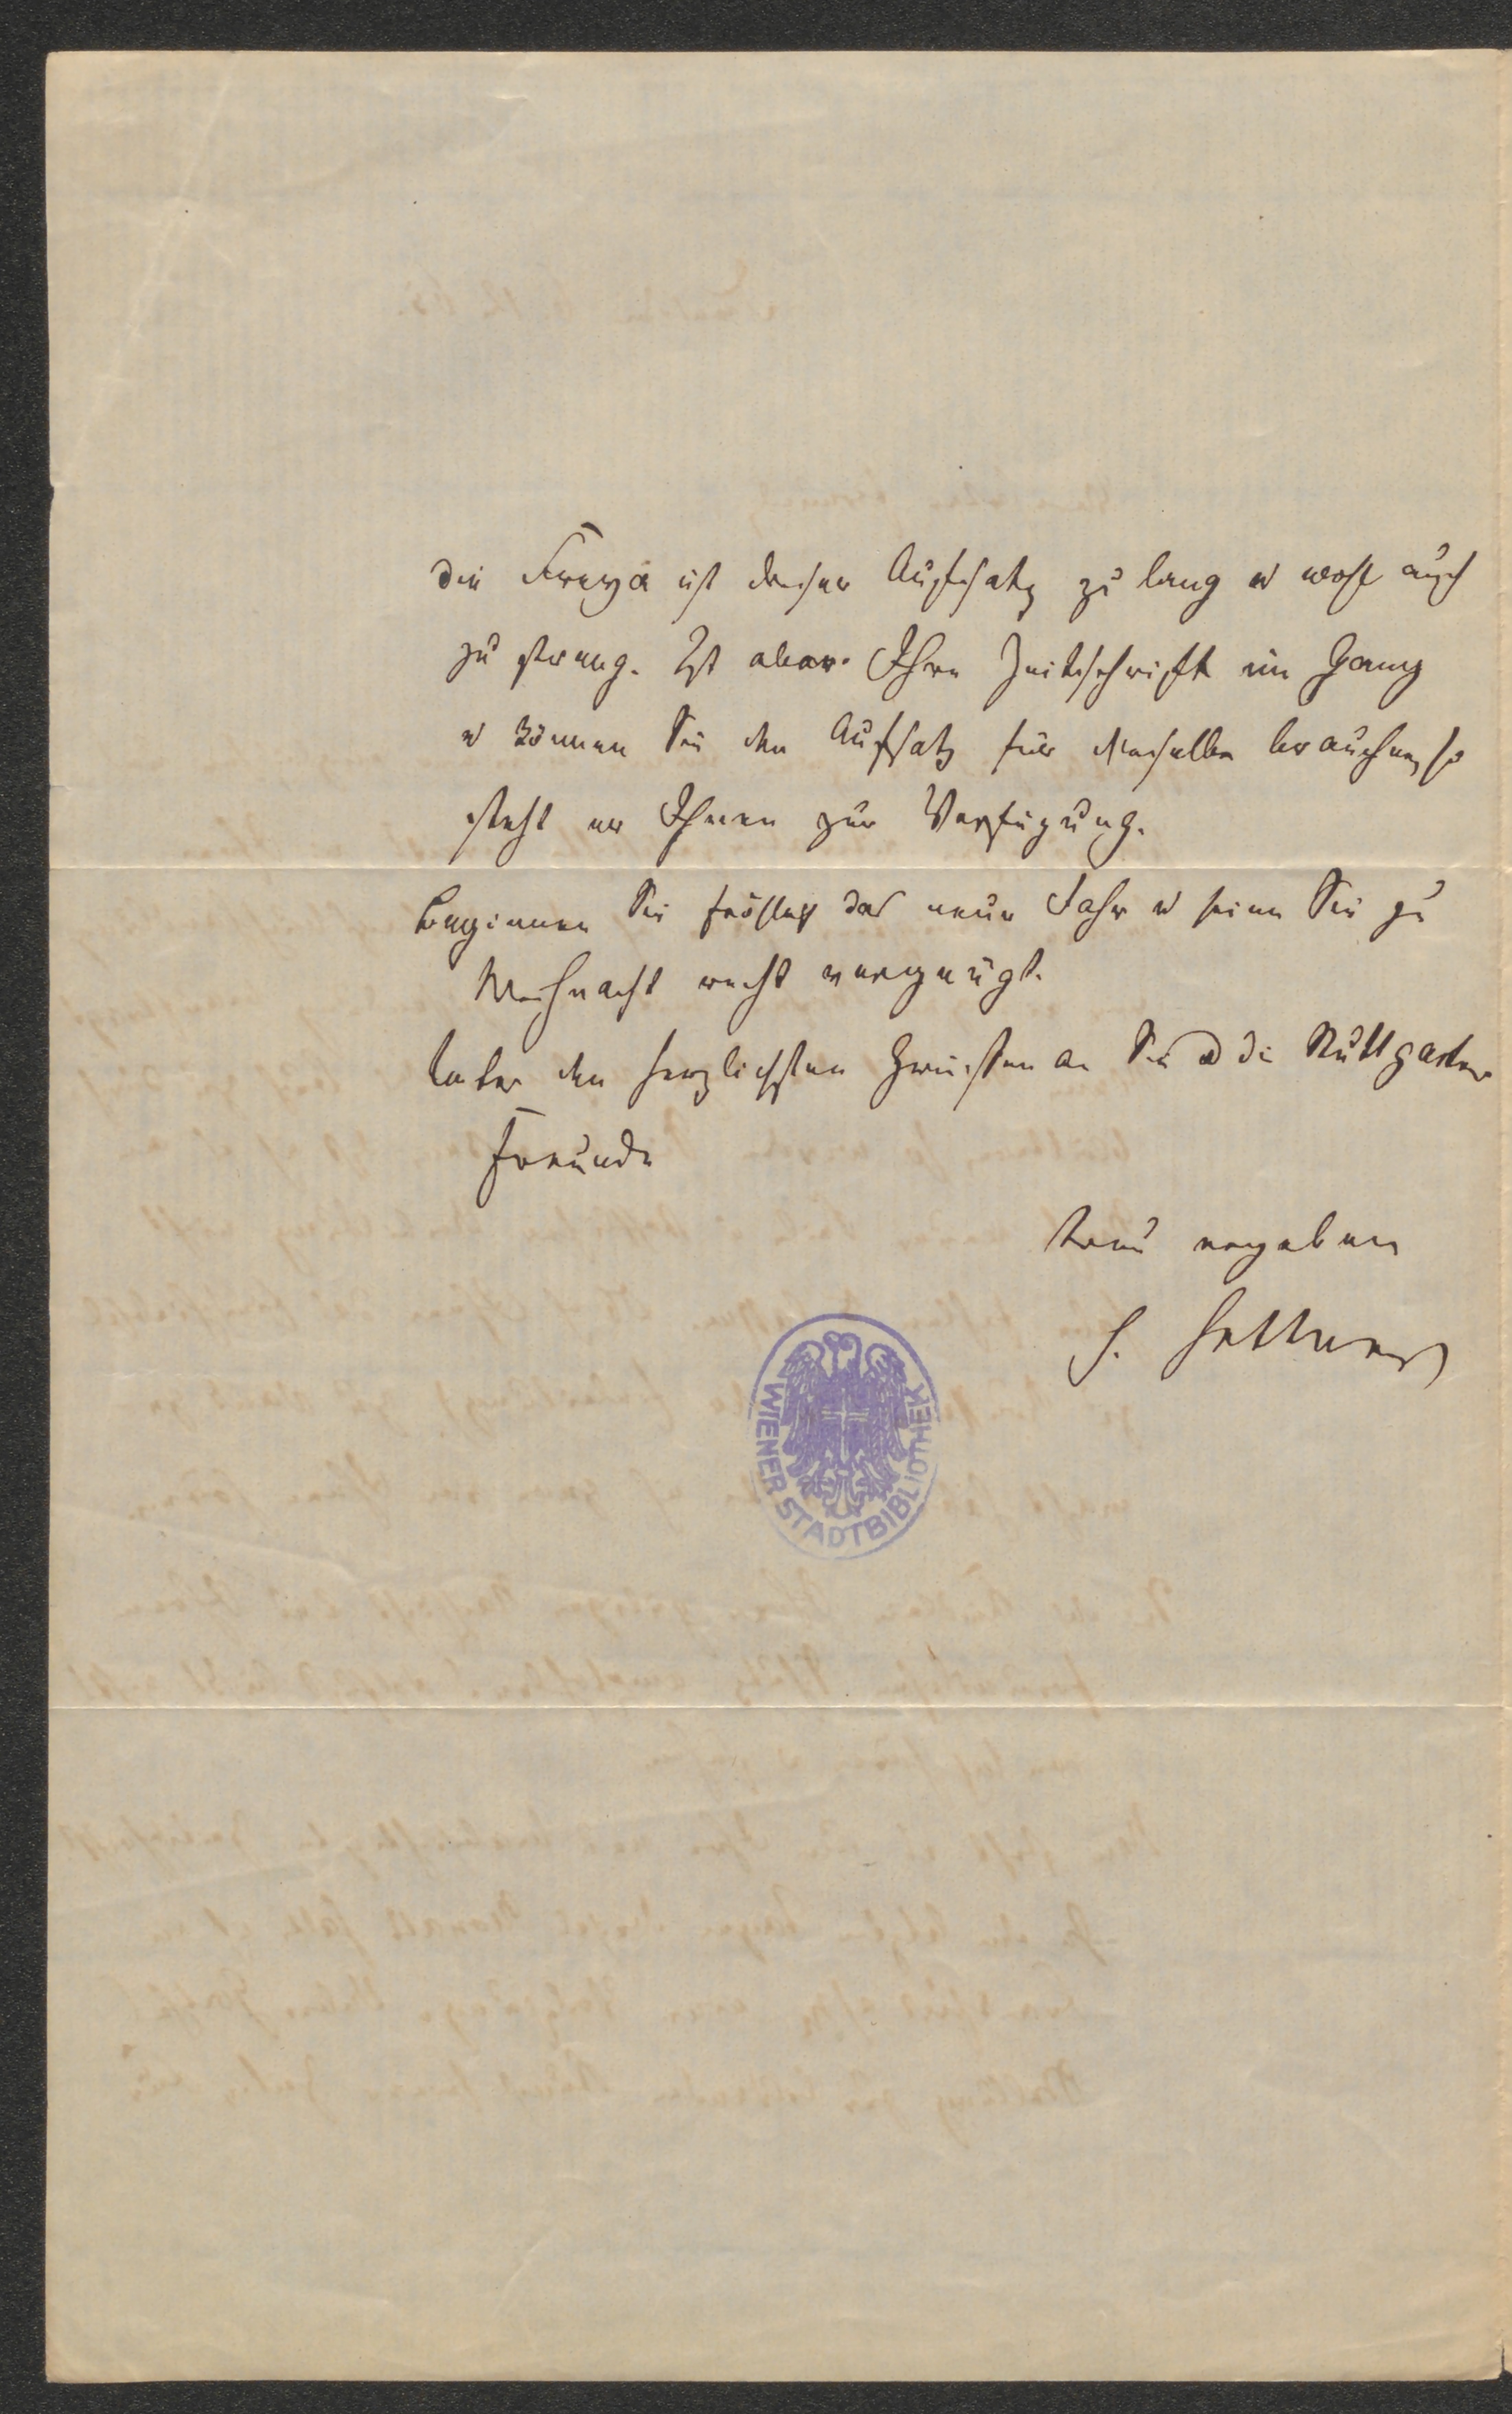 die Freya ist dieser Aufsatz zu lang u wohl auch
zu streng. Ist aber Ihre Zeitschrift im Gang
u können Sie den Aufsatz für dieselbe brauchen, so
steht er Ihnen zur Verfügung.
Beginnen Sie fröhlich das neue Jahr u seien Sie zu
Weihnacht recht vergnügt.
Unter den herzlichsten Grüssen an Sie u die Stuttgarter
Freunde
treu ergeben
H. Hettner
WIENER STADTBIBLIOTHEK